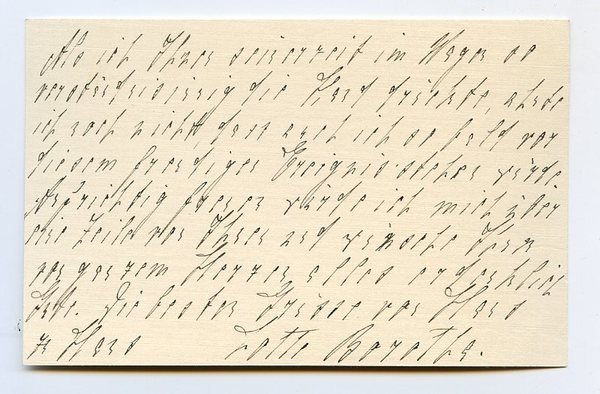 Als ich Ihnen seinerzeit im Wagen so
verständnisinnig die Hand drückte, ahnte
ich noch nicht dass auch ich so bald vor
diesem freudigen Ereignis stehen würde
Aufrichtig freuen würde ich mich über
eine Zeile von Ihnen und wünsche Ihnen
von ganzem Herzen alles erdenklich
Gute. Die besten Grüsse von Haus
zu Haus Lotte Barothe.